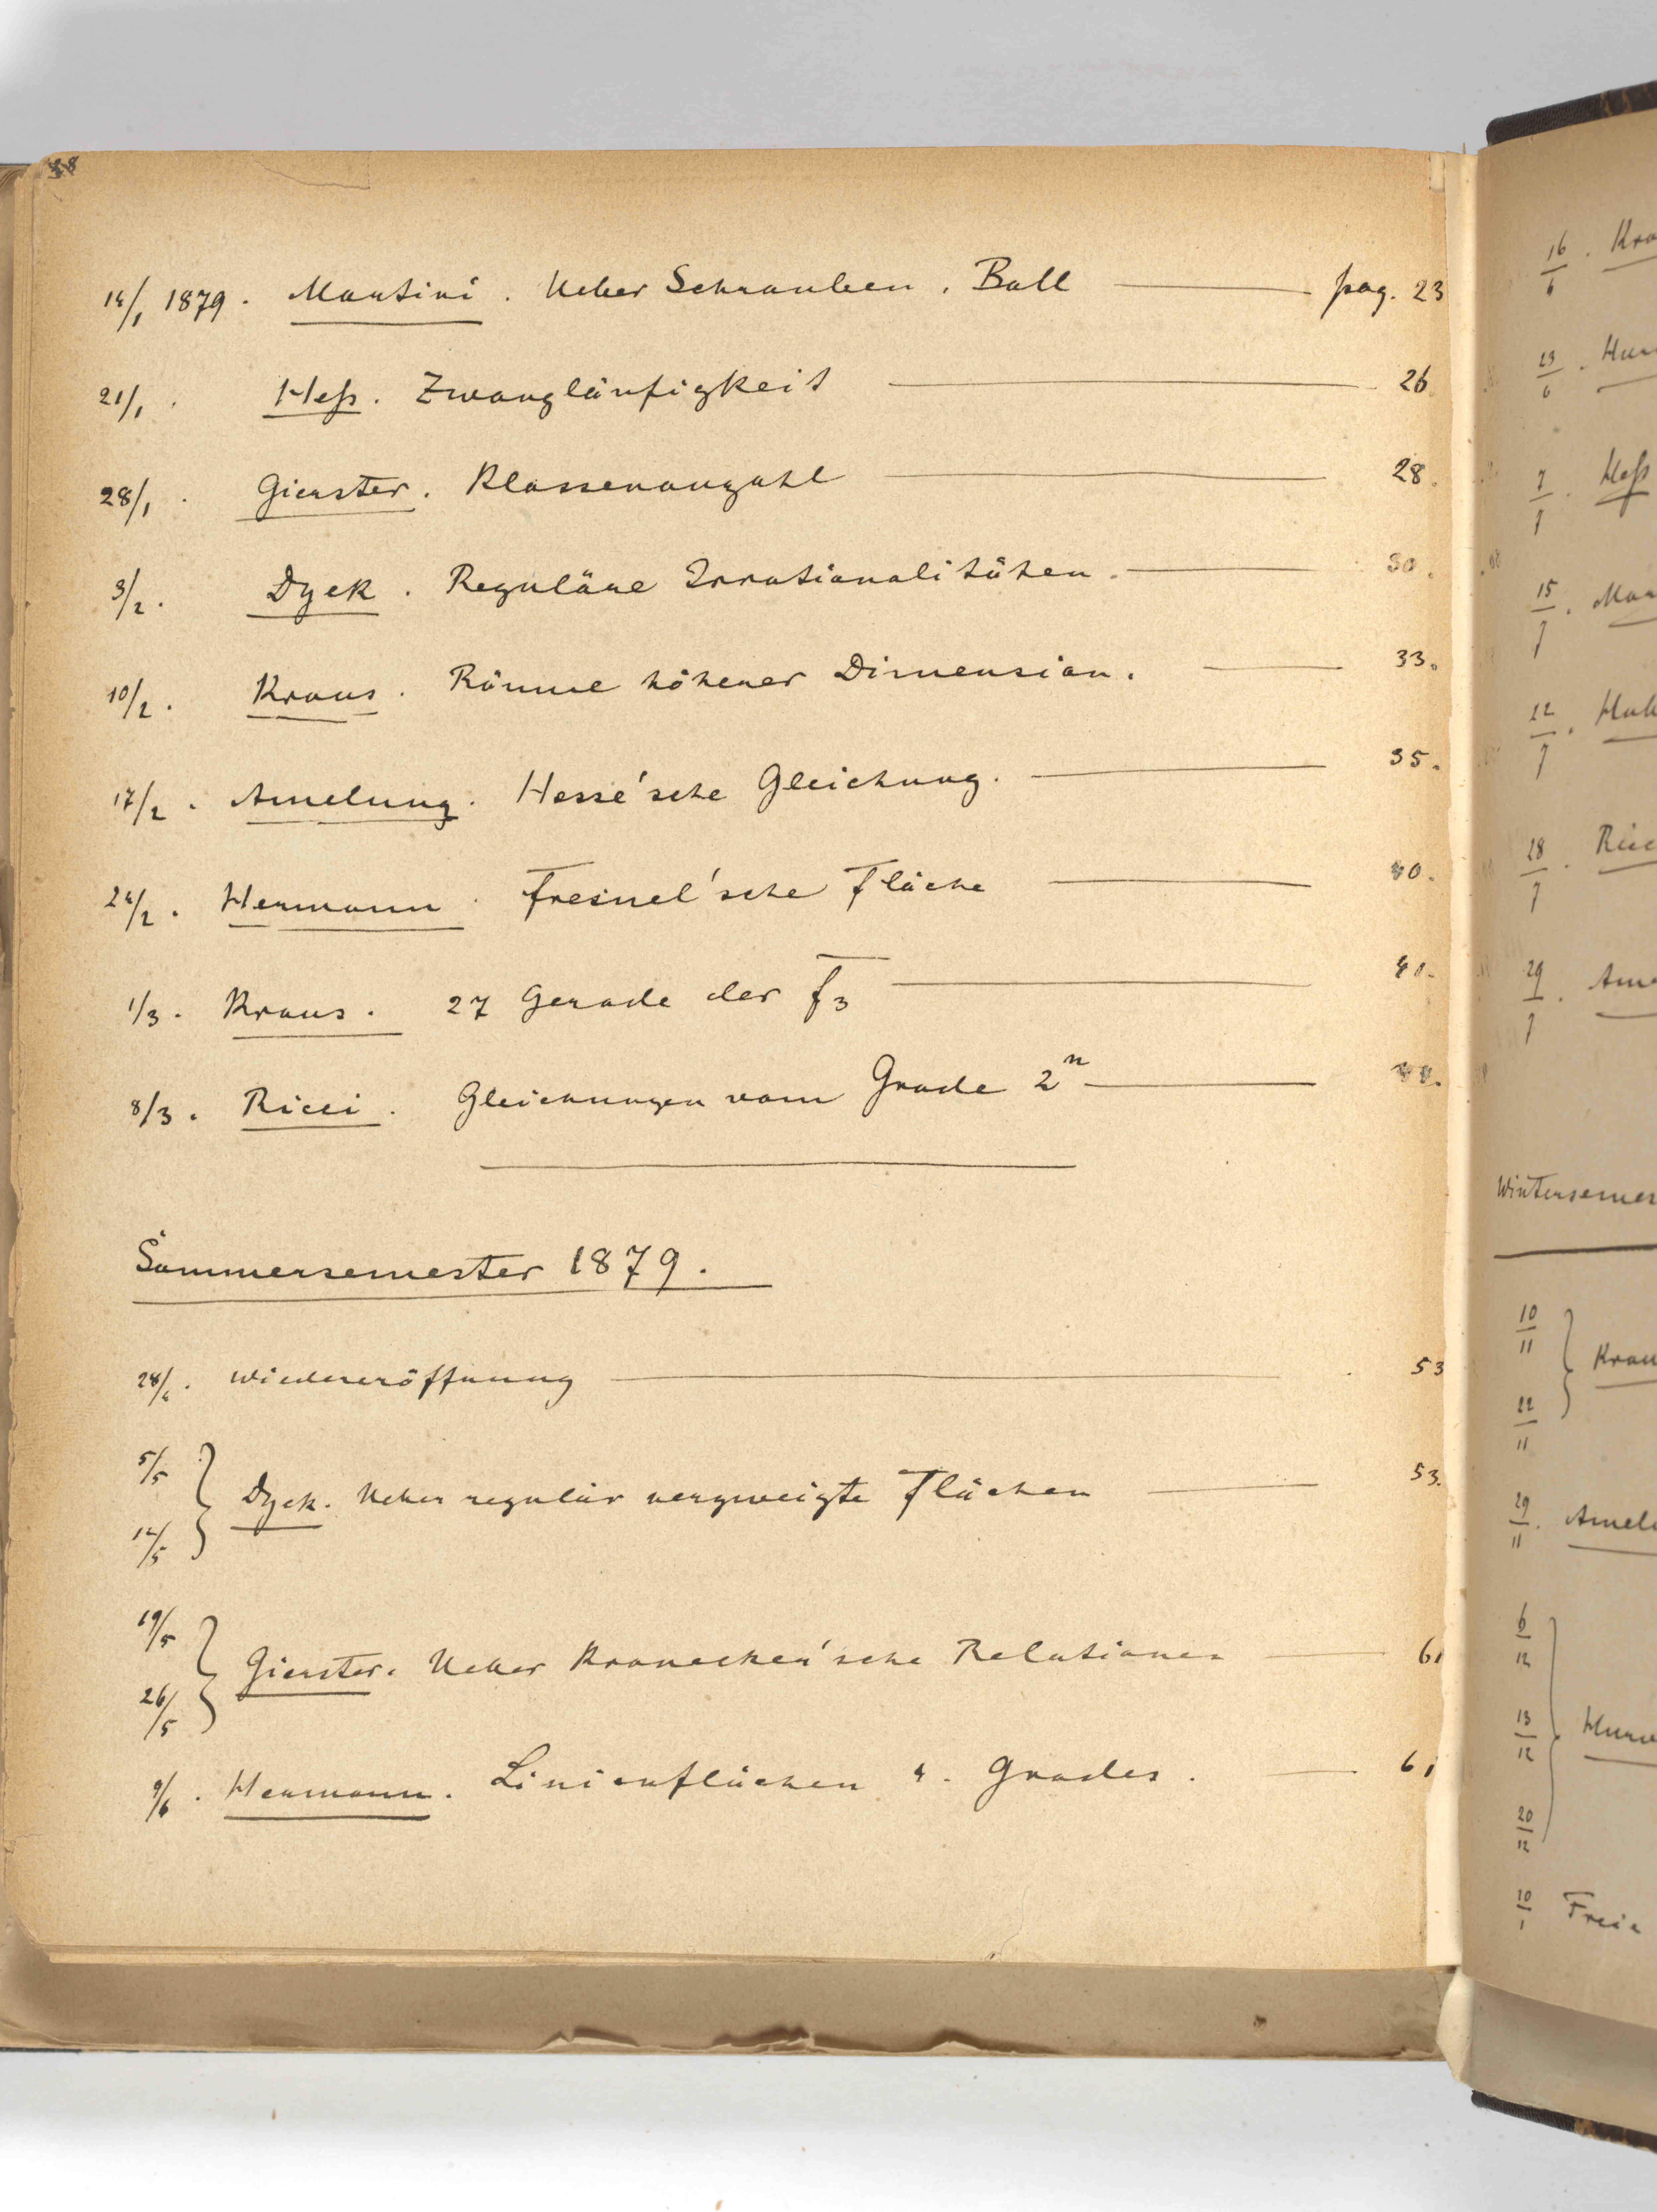 14/1 1879. Mantini. Ueber Schrauben. Ball — pag. 23
21/1. Heß. Zwangläufigkeit — 26.
28/1. Gierster. Klassenanzahl — 28.
3/2. Dyck. Reguläre Irrationalitäten. — 30.
10/2. Kraus. Räume höherer Dimension. — 33.
17/2. Amelung. Hesse'sche Gleichung. — 35.
24/2. Hermann. Fresnel'sche Fläche — 40.
1/3. Kraus. 27 Gerade der F3 — 41.
8/3. Ricci. Gleichungen vom Grade 2^n —
Sommersemester 1879.
28/4. Wiedereröffnung — 53
5/5
12/5 } Dyck. Ueber regulär verzweigte Flächen — 53.
19/5
26/5 } Gierster. Ueber Kronecker'sche Relationen — 61
9/6. Hermann. Linienflächen 4. Grades. — 61
16/6.
23/6.
7/7. Heß
15/7.
22/7.
28/7.
29/7.
10/11
22/11 }
29/11.
6/12
13/12
20/12 }
10/1